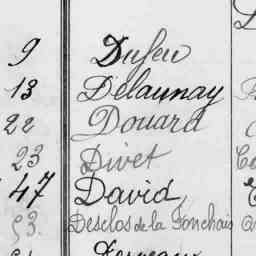 9 Dufeu
13 Delaunay
22 Douard
23 Divet
47 David
53. Desclos de la Fonchais